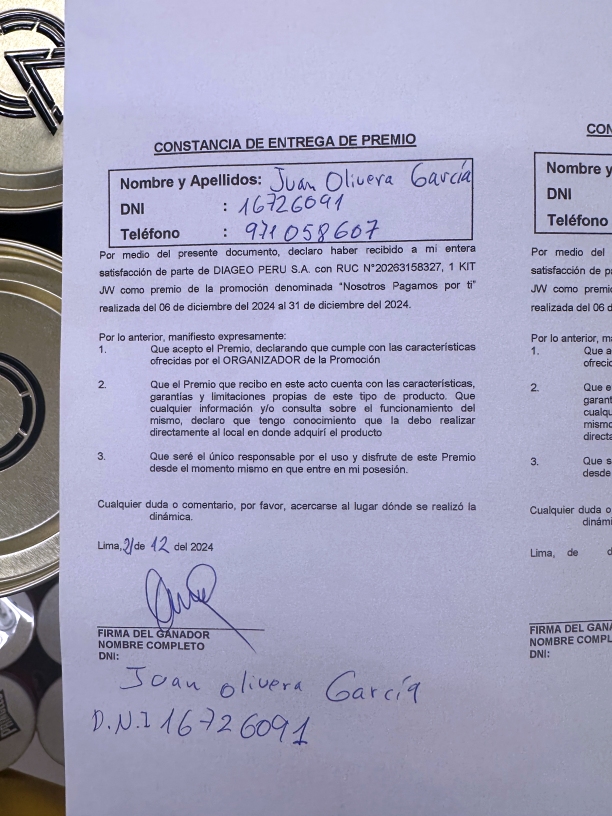 CONSTANCIA DE ENTREGA DE PREMIO
Nombre y Apellidos: Juan Olivera García
DNI : 16726091
Teléfono : 971058607
Por medio del presente documento, declaro haber recibido a mi entera
satisfacción de parte de DIAGEO PERU S.A. con RUC N°20263158327, 1 KIT
JW como premio de la promoción denominada “Nosotros Pagamos por ti”
realizada del 06 de diciembre del 2024 al 31 de diciembre del 2024.
Por lo anterior, manifiesto expresamente:
1. Que acepto el Premio, declarando que cumple con las características
ofrecidas por el ORGANIZADOR de la Promoción
2. Que el Premio que recibo en este acto cuenta con las características,
garantías y limitaciones propias de este tipo de producto. Que
cualquier información y/o consulta sobre el funcionamiento del
mismo, declaro que tengo conocimiento que la debo realizar
directamente al local en donde adquirí el producto
3. Que seré el único responsable por el uso y disfrute de este Premio
desde el momento mismo en que entre en mi posesión.
Cualquier duda o comentario, por favor, acercarse al lugar dónde se realizó la
dinámica.
Lima, 21 de 12 del 2024
FIRMA DEL GANADOR
NOMBRE COMPLETO
DNI:
Juan olivera García
D.N.I 16726091
CON
Nombre y
DNI
Teléfono
Por medio del
satisfacción de pa
JW como premio
realizada del 06 d
Por lo anterior, ma
1. Que a
ofrecid
2. Que e
garant
cualqu
mismo
directa
3. Que s
desde
Cualquier duda o
dinámi
Lima, de d
FIRMA DEL GANA
NOMBRE COMPL
DNI: